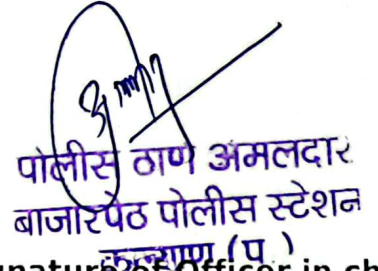 पोलीस ठाणे अमलदार
बाजारपेठ पोलीस स्टेशन
कल्याण (प.)
Signature of Officer in